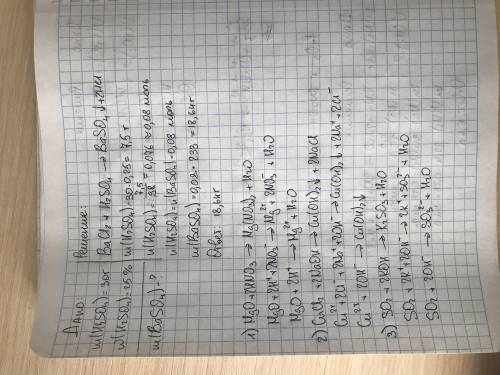 Дано:
m(H₂SO₄)=30г
w(H₂SO₄)=25%
m(BaSO₄)-?
Решение:
BaCl₂ + H₂SO₄ → BaSO₄↓ + 2HCl
m(H₂SO₄)=30·0,25=7,5 г
n(H₂SO₄)= 7,5/98 = 0,076 ≈ 0,08 моль
n(H₂SO₄)=n(BaSO₄)=0,08 моль
m(BaSO₄)=0,08·233=18,64г
Ответ: 18,64г
1) MgO+2HNO₃ → Mg(NO₃)₂ + H₂O
MgO+2H⁺+2NO₃⁻ → Mg²⁺+2NO₃⁻ + H₂O
MgO + 2H⁺ → Mg²⁺ + H₂O
2) CuCl₂ + 2NaOH → Cu(OH)₂↓ + 2NaCl
Cu²⁺+2Cl⁻ + 2Na⁺+2OH⁻ → Cu(OH)₂↓ + 2Na⁺ + 2Cl⁻
Cu²⁺ + 2OH⁻ → Cu(OH)₂↓
3) SO₂ + 2KOH → K₂SO₃ + H₂O
SO₂ + 2K⁺+2OH⁻ → 2K⁺+SO₃²⁻ + H₂O
SO₂ + 2OH⁻ → SO₃²⁻ + H₂O